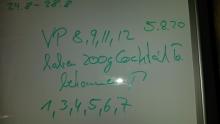 24.8 - 28.8
VP 8,9,11,12 5.8.20
haben 200g Cocktail To.
bekommen
1,3,4,5,6,7